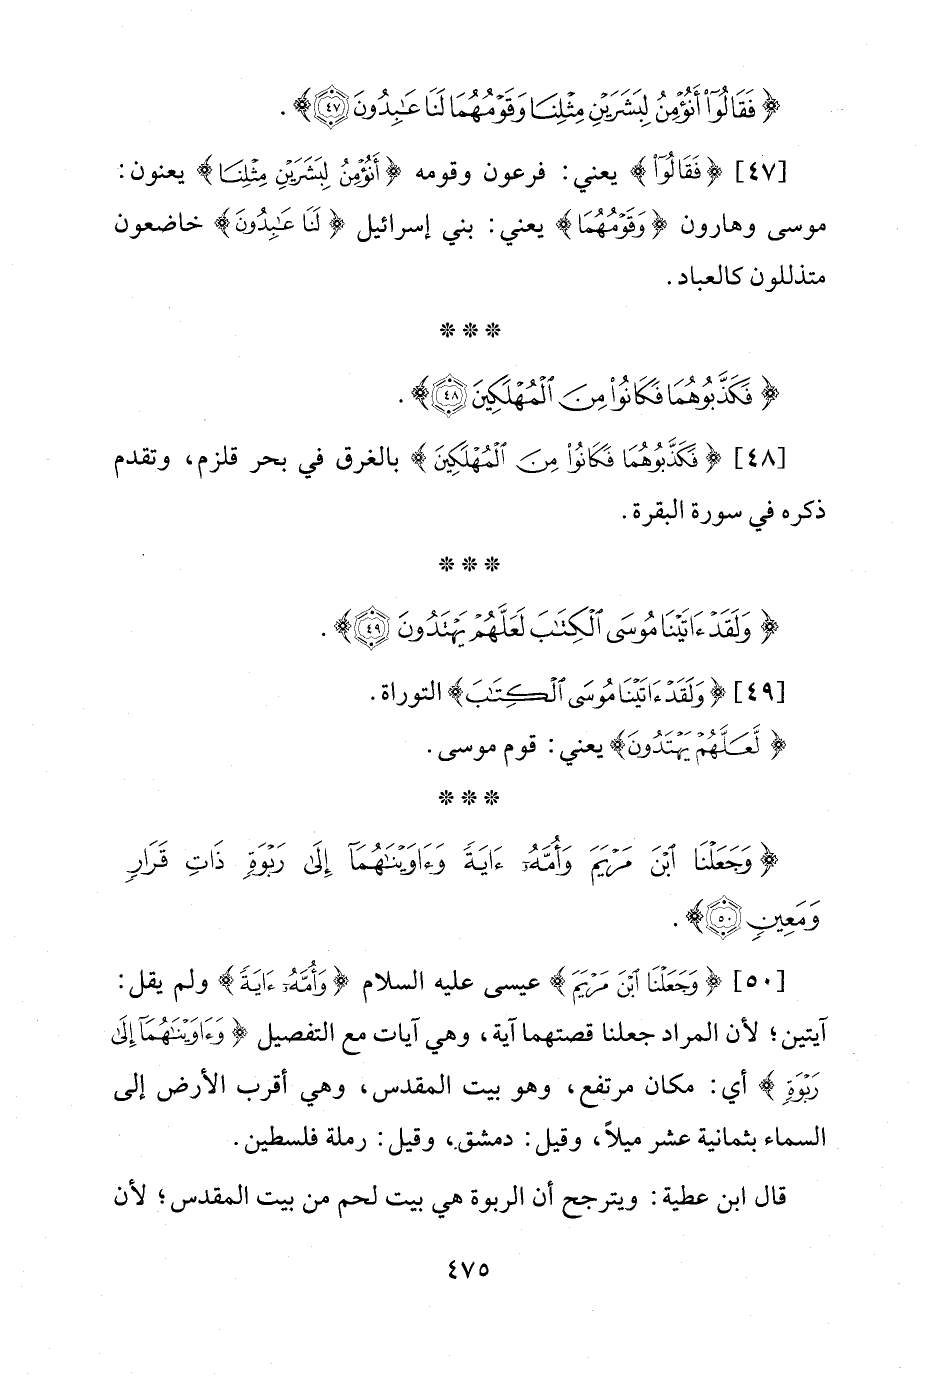 ﴿ فَقَالُوٓا۟ أَنُؤْمِنُ لِبَشَرَيْنِ مِثْلِنَا وَقَوْمُهُمَا لَنَا عَـٰبِدُونَ ٤٧ ﴾ .
[٤٧] ﴿ فَقَالُوٓا۟ ﴾ يعني: فرعون وقومه ﴿ أَنُؤْمِنُ لِبَشَرَيْنِ مِثْلِنَا ﴾ يعنون:
موسى وهارون ﴿ وَقَوْمُهُمَا ﴾ يعني: بني إسرائيل ﴿ لَنَا عَـٰبِدُونَ ﴾ خاضعون
متذللون كالعباد.
* * *
﴿ فَكَذَّبُوهُمَا فَكَانُوا۟ مِنَ ٱلْمُهْلَكِينَ ٤٨ ﴾ .
[٤٨] ﴿ فَكَذَّبُوهُمَا فَكَانُوا۟ مِنَ ٱلْمُهْلَكِينَ ﴾ بالغرق في بحر قلزم، وتقدم
ذكره في سورة البقرة.
* * *
﴿ وَلَقَدْ ءَاتَيْنَا مُوسَى ٱلْكِتَـٰبَ لَعَلَّهُمْ يَهْتَدُونَ ٤٩ ﴾ .
[٤٩] ﴿ وَلَقَدْ ءَاتَيْنَا مُوسَى ٱلْكِتَـٰبَ ﴾ التوراة.
﴿ لَعَلَّهُمْ يَهْتَدُونَ ﴾ يعني: قوم موسى.
* * *
﴿ وَجَعَلْنَا ٱبْنَ مَرْيَمَ وَأُمَّهُۥٓ ءَايَةً وَءَاوَيْنَـٰهُمَآ إِلَىٰ رَبْوَةٍ ذَاتِ قَرَارٍ
وَمَعِينٍ ٥٠ ﴾ .
[٥٠] ﴿ وَجَعَلْنَا ٱبْنَ مَرْيَمَ ﴾ عيسى عليه السلام ﴿ وَأُمَّهُۥٓ ءَايَةً ﴾ ولم يقل:
آيتين؛ لأن المراد جعلنا قصتهما آية، وهي آيات مع التفصيل ﴿ وَءَاوَيْنَـٰهُمَآ إِلَىٰ
رَبْوَةٍ ﴾ أي: مكان مرتفع، وهو بيت المقدس، وهي أقرب الأرض إلى
السماء بثمانية عشر ميلاً، وقيل: دمشق، وقيل: رملة فلسطين.
قال ابن عطية: ويترجح أن الربوة هي بيت لحم من بيت المقدس؛ لأن
٤٧٥